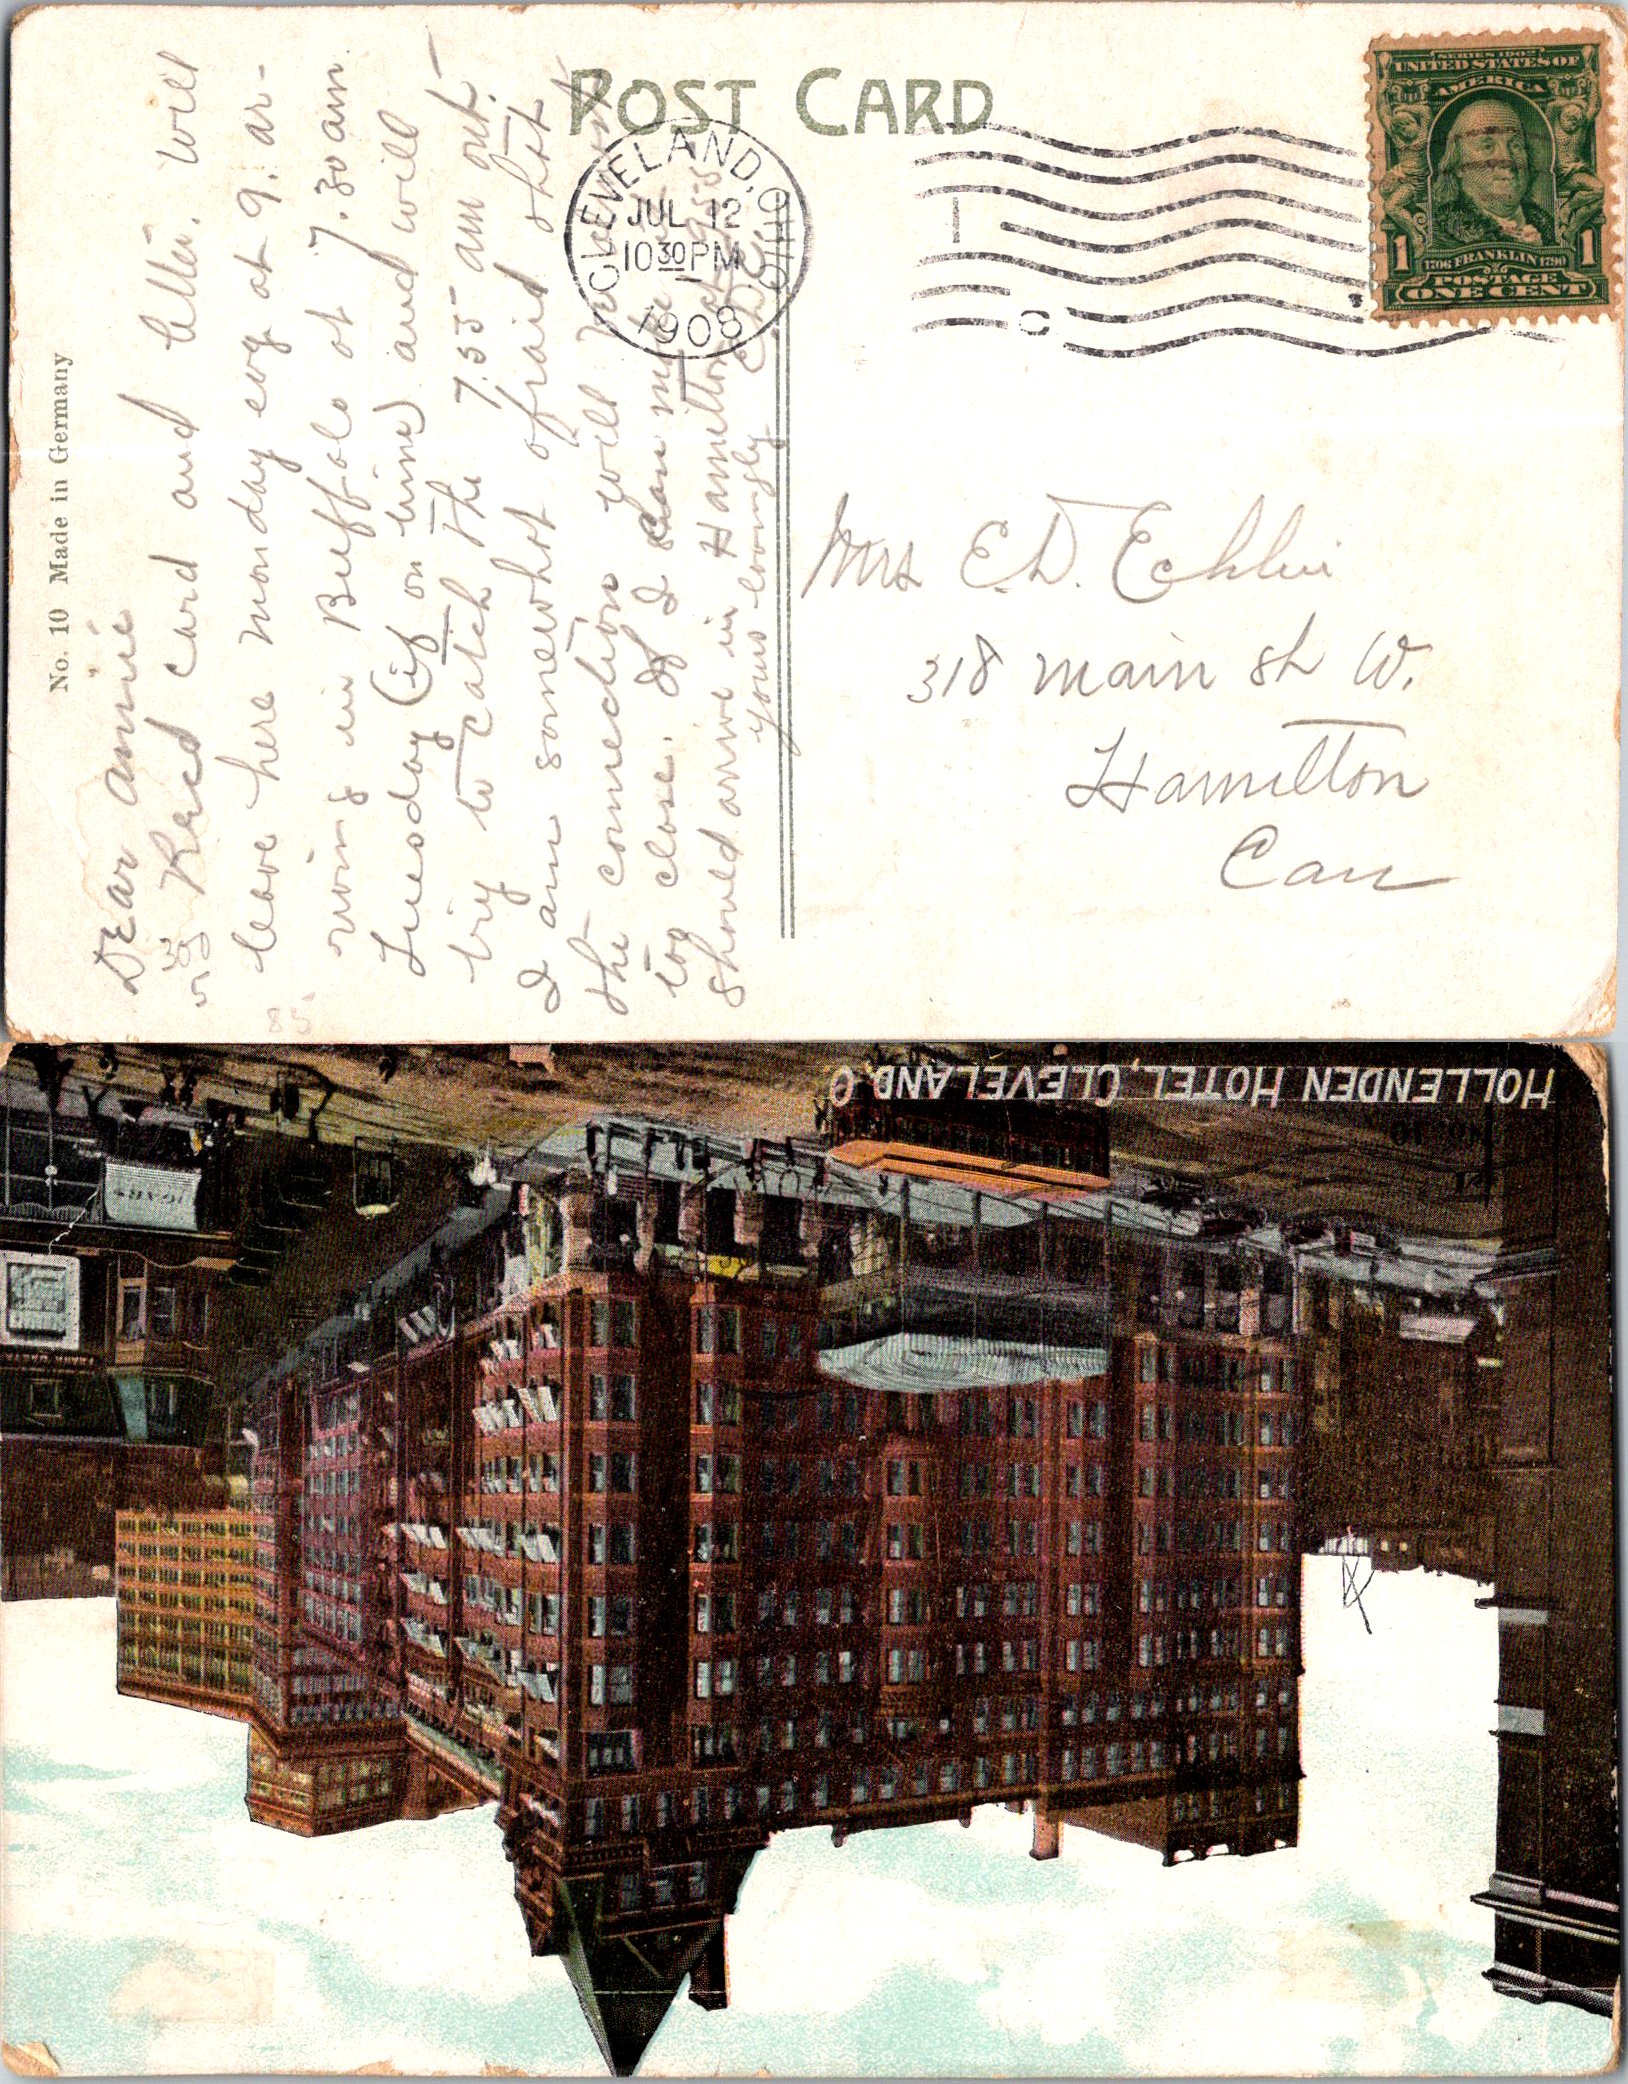 POST CARD
No. 10 Made in Germany
CLEVELAND, OHIO
JUL 12
1030 PM
1908
1
C
SERIES 1902
UNITED STATES OF
AMERICA
1706 FRANKLIN 1790
1 1
POSTAGE
ONE CENT
Dear Annie
Recd card and letter. Will
leave here Monday evg at 9. ar-
riving in Buffalo at 7.30 am.
Tuesday (if on time) and will
try to catch the 7.55 am out.
I am somewhat afraid that
the connection will be
too close. If I can make
should arrive in Hamilton 9.55
yours lovingly
Mrs E.D. Echlin
318 Main St W.
Hamilton
Can
85
HOLLENDEN HOTEL, CLEVELAND, O
NO. 10